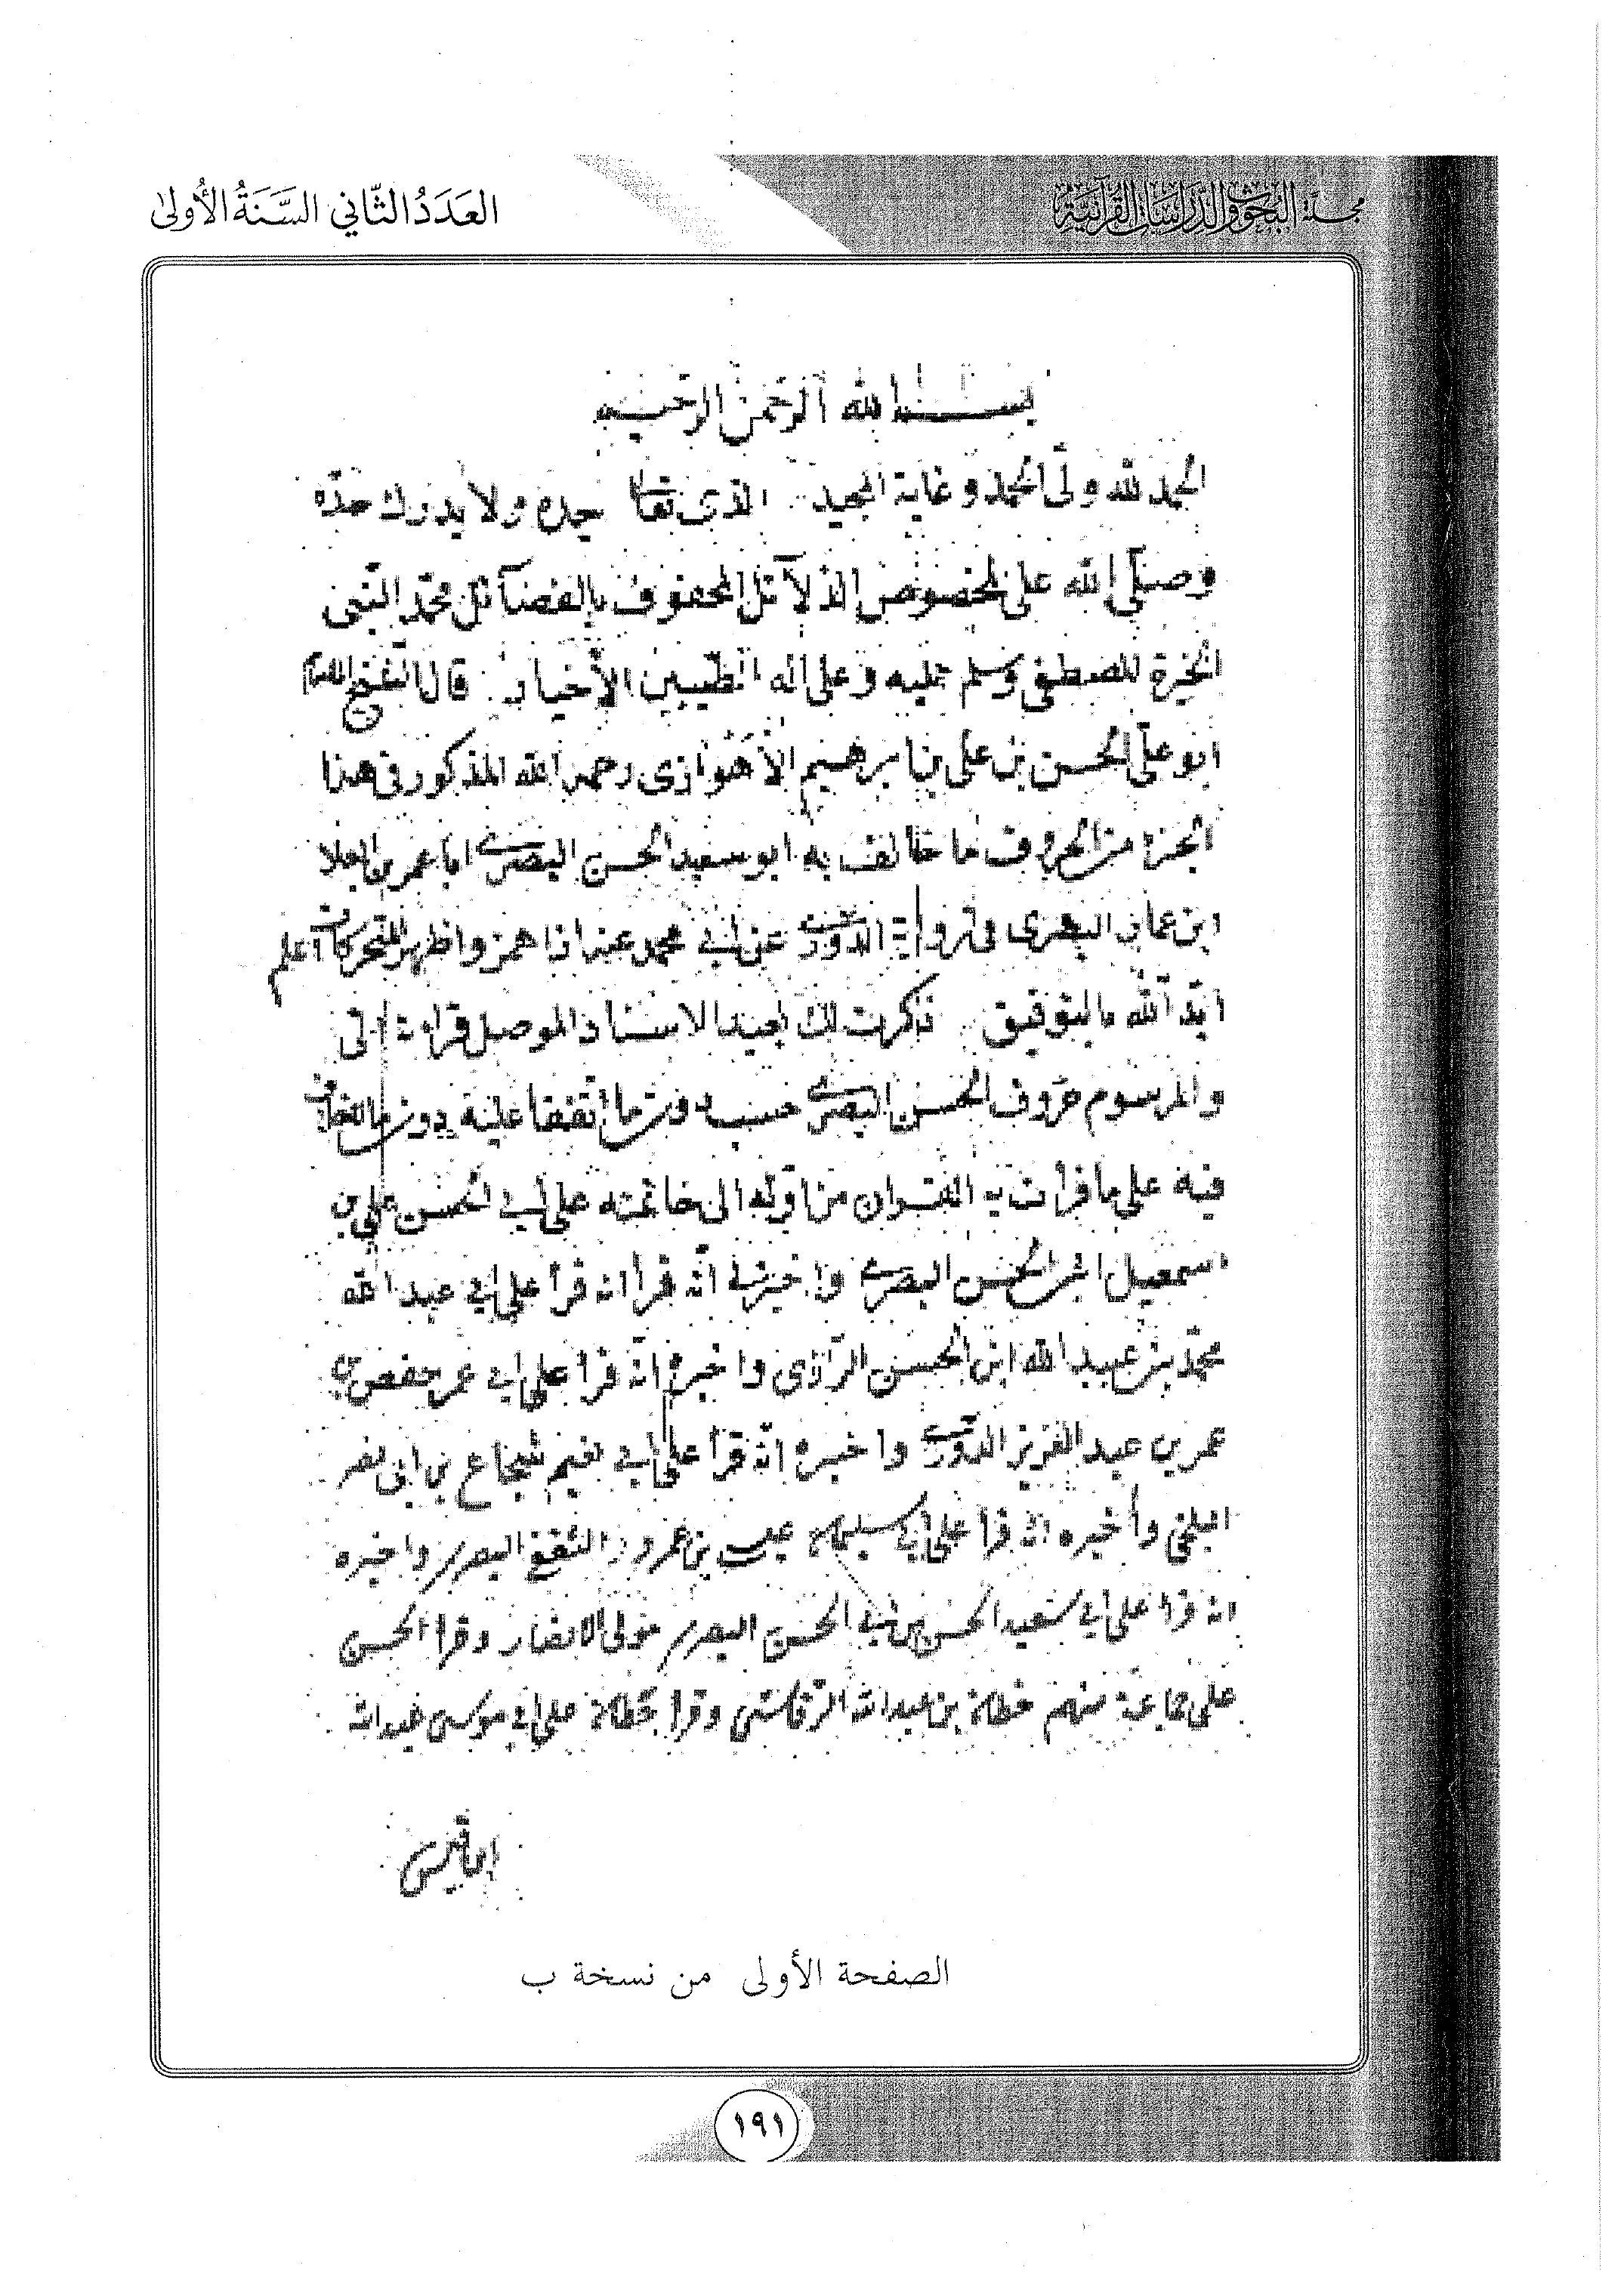 مجلة البحوث والدراسات القرآنية
العَدَدُ الثَّاني السَّنَةُ الأُولىٰ
بسم الله الرحمن الرحيم
الحمد لله ولي الحمد وغاية المجيد الذي حمده ولا يدرك حده
وصلى الله على المخصوص الدلآئل المحفوف بالفضآئل محمد النبي
الخيرة المصطفى وسلم عليه وعلى اله الطيبين الأخيار قال الشيخ
ابو على الحسن بن على بن ابرهيم الأهوازى رحمه الله المذكور فى هذا
الجزء من الحروف ما خالف به ابو سعيد الحسن البصرى ابا عمر بن العلا
ابن عمار البصرى فى رواية الدورى عن ابي محمد عنه اذا همز واظهر المتحركات اعلم
ايد الله بالتوفيق ذكرت لك الاسناد الموصل قراءة
والمرسوم حروف الحسن البصرى حسب دون ما اتفقا علية دون ما
فيه على ما قرأت به القران من اوله الى خاتمته على ابي الحسن على بن
اسمعيل ابن الحسن البصرى واخبرنى انه قرا انه قرأ على ابي عبد الله
محمد بن عبيد الله ابن الحسن الرازى واخبره انه قرأ على ابي عمر حفص بن
عمر بن عبد العزيز الدورى واخبره انه قرأ على ابي نعيم شجاع بن ابى نصر
البلخى وأخبره انه قرأ على ابي عيسى بن الثقفى البصرى واخبره
انه قرا على ابي سعيد الحسن بن ابي الحسن البصرى مولى الانصار وقرا الحسن
على جماعة منهم حطان بن عبد الله الرقاشى وقرا حطان على ابي موسى عبد الله
ابن قيس
الصفحة الأولى من نسخة ب
١٩١